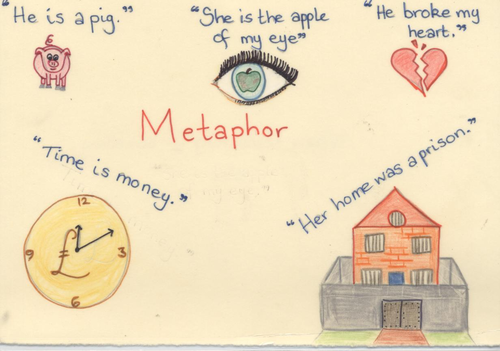 "He is a pig."
"She is the apple
of my eye"
"He broke my
heart."
Metaphor
"Time is money."
"Her home was a prison."
12
3
6
9
£